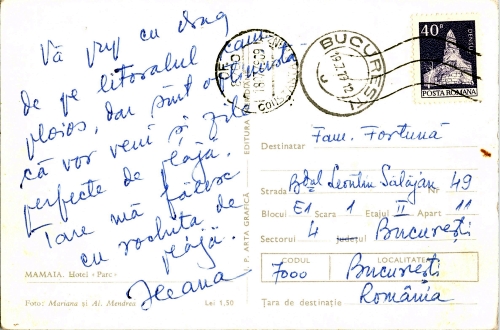 Vă pup cu drag
de pe litoralul cam
ploios, dar sunt optimistă
că vor veni și zile
perfecte de plajă.
Ioare mă făcesc
cu rochița de
plajă.
Ileana
MAMAIA. Hotel «Parc»
Foto: Mariana și Al. Mendrea
Lei 1,50
P. ARTA GRAFICĂ
EDITURA
BUCUREȘTI
40B
DENSUȘ
POSTA ROMANA
Destinatar Fam. Fortună
Strada Bdul Leontin Sălăjan Nr 49
Blocul E1 Scara 1 Etajul II Apart 11
Sectorul 4 județul București
CODUL LOCALITATEA
7000 București
Țara de destinație România